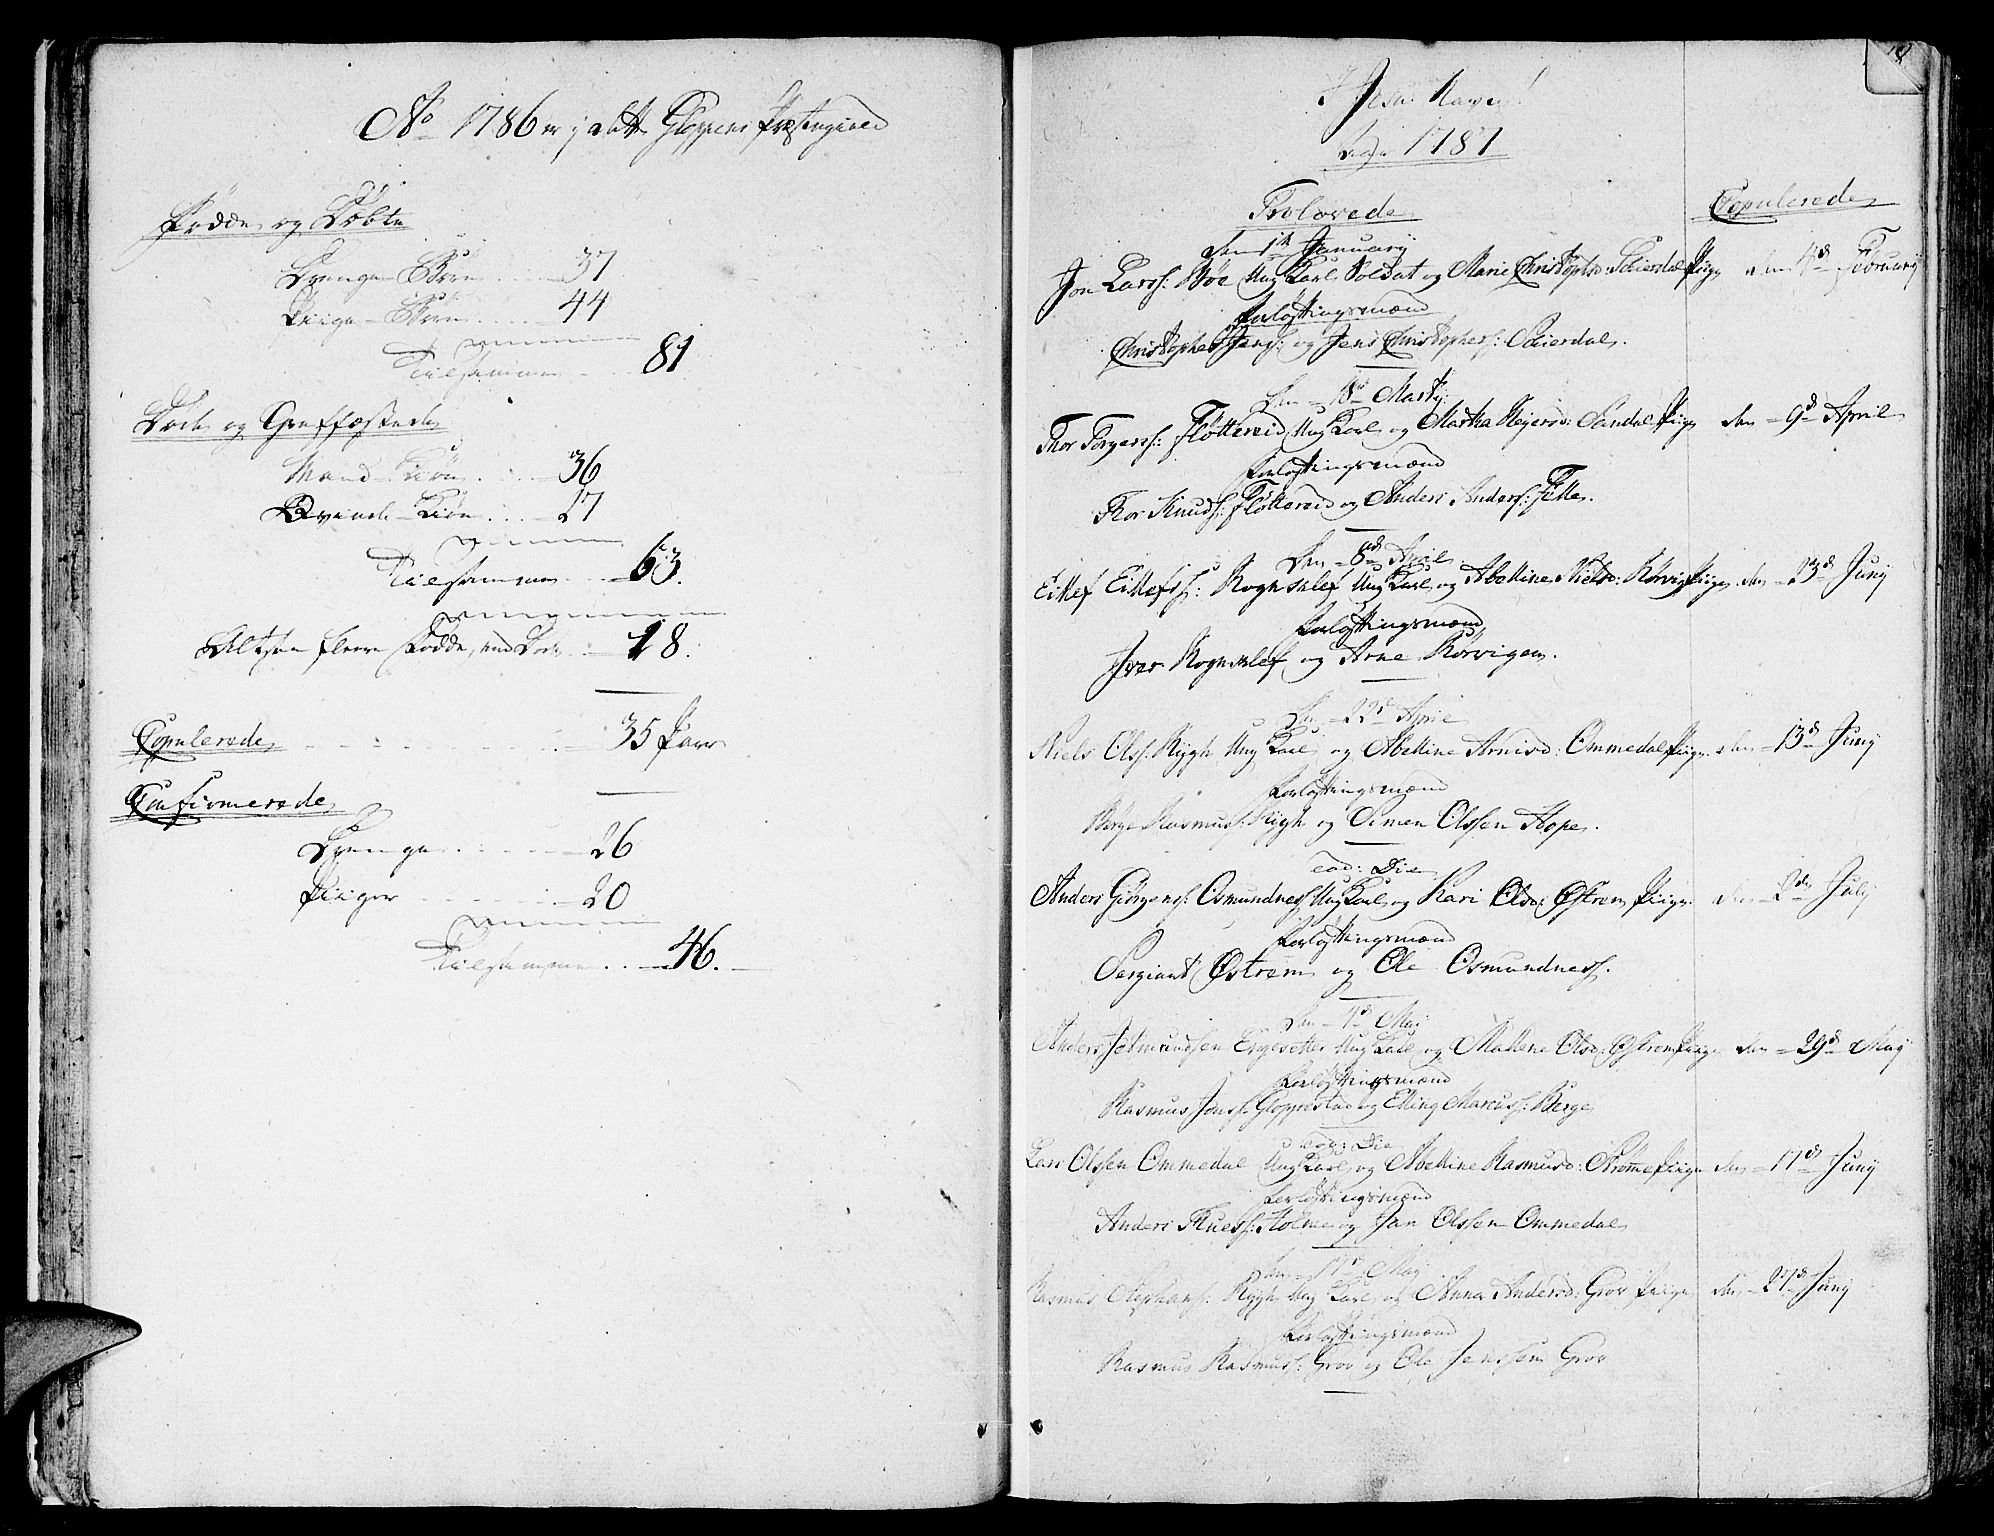 Ao 1786 er i alt Gloppens Præstegield
Fødde og Døbte
Drenge-Børn 37
Piige-Børn 44
Tilsammen 81
Døde og Graffæstede
Mand-Kiøn 36
Qvinde-Kiøn 27
Tilsammen 63.
Altsaa fleere Fødde, end Døde 18.
Copulerede 35 Parr
Confirmerede
Drenge 26
Piiger 20
Tilsammen 46.
I Jesu Navn!
1787
Trolovede
Copulerede
Den 1te January
Jon Larss: Bøe Ung Karl Soldat og Marie Christophd: Scheirdal Piige den 4de February
Forløftingsmænd
Christopher Jenss: og Jens Christophers: Scheirdal.
Den 18de Marty
Thor Torgerss: Fløttereid Ung Karl og Martha Rejersd: Sandal Piige den 9de April
Forløftingsmænd
Thor Knuds: Fløttereid og Anders Anderss: Fitte.
Den 8de April
Ellef Ellefss: Rognklef Ung Karl og Abelline Nielsd: Rørvig Piige den 23de Juny
Forløftingsmænd
Iver Rognklef og Arne Rørvigen.
Den 22de April
Niels Olss: Rygh Ung Karl og Abelline Arnisd: Ommedal Piige den 13de Juny
Forløftingsmænd
Børge Rasmuss: Rygh og Simen Olssen Hope.
eod: Die
Anders Giörgenss: Osmundness Ung Karl og Kari Olsd: Østrem Piige den 2den July
Forløftingsmænd
Sergiant Østrem og Ole Osmundness.
Den 4de May
Anders Jetmundsen Engesetter Ung Karl og Mallene Olsd: Østrem Piige den 29de May
Forløftingsmænd
Rasmus Jonss: Gloppestad og Elling Marcuss: Berge
eod: Die
Lars Olssen Ommedal Ung Karl og Abelline Rasmusd: Strømme Piige den 17de Juny
Forløftingsmænd
Anders Thuess: Holme og Jan Olssen Ommedal
den 17de May
Rasmus Stephans: Rygh Ung Karl og Anna Andersd: Grov Piige den 27de Juny
Forløftingsmænd
Rasmus Rasmuss: Grov og Ole Jenssen Grov